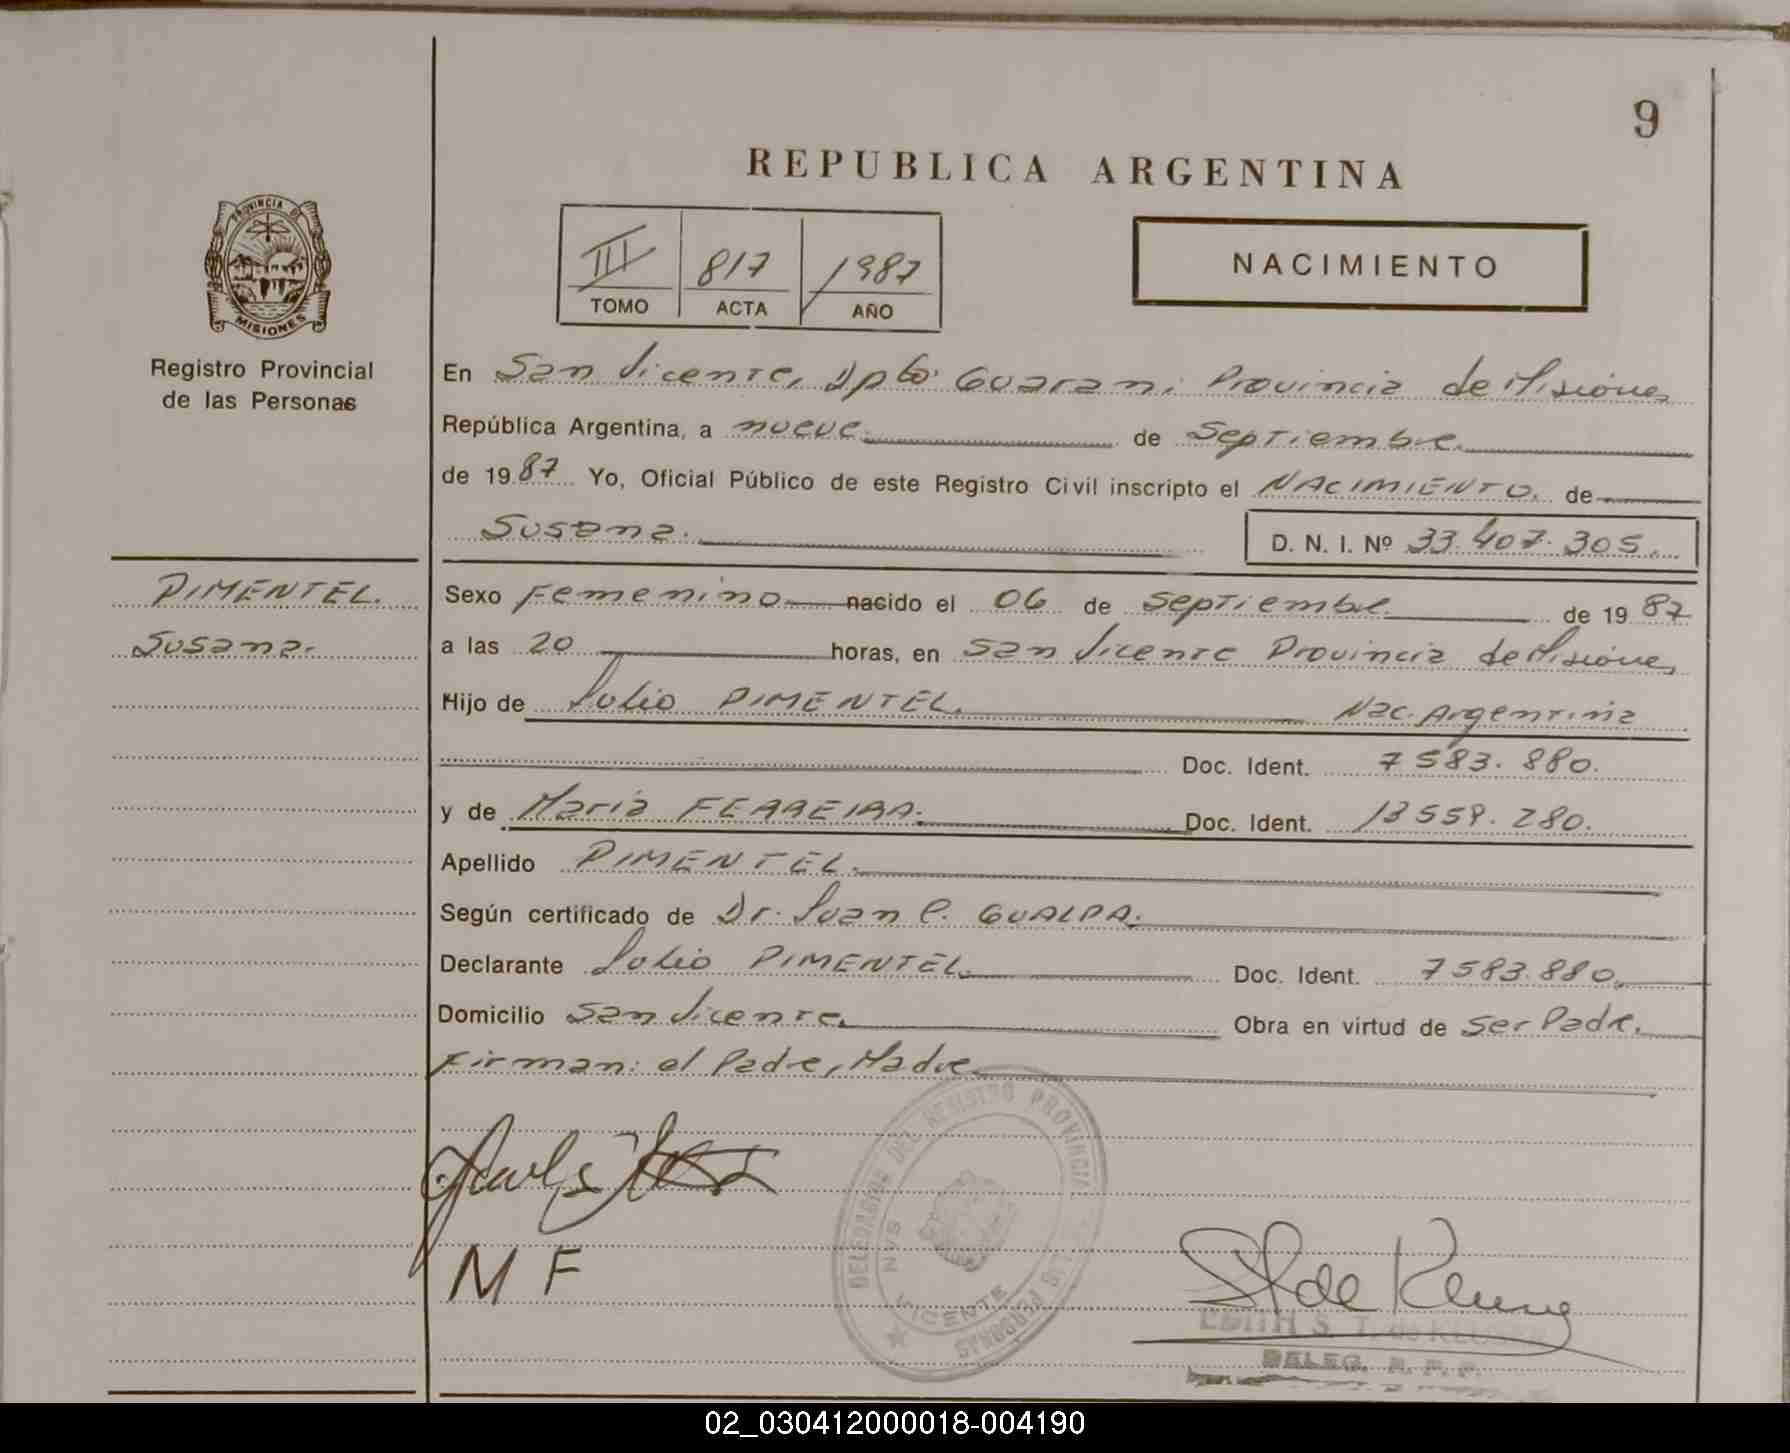 9
REPUBLICA ARGENTINA
PROVINCIA DE
MISIONES
Registro Provincial
de las Personas
III 817 1987
TOMO ACTA AÑO
NACIMIENTO
En San Vicente, Dpto. Guaraní Provincia de Misiones
República Argentina, a nueve. de Septiembre.
de 1987 Yo, Oficial Público de este Registro Civil inscripto el NACIMIENTO. de
Susana. D. N. I. Nº 33.407.305.
PIMENTEL.
Susana.
Sexo Femenino nacido el 06 de Septiembre. de 1987
a las 20 horas, en San Vicente Provincia de Misiones
Hijo de Julio PIMENTEL. Nac. Argentina
Doc. Ident. 7583.880.
y de María FERREIRA. Doc. Ident. 13559.280.
Apellido PIMENTEL.
Según certificado de Dr. Juan C. GUALPA.
Declarante Julio PIMENTEL. Doc. Ident. 7583.880.
Domicilio San Vicente. Obra en virtud de ser Padre.
Firman: el Padre, Madre.
DELEGACION DEL REGISTRO PROVINCIAL DE LAS PERSONAS
SAN VICENTE
M F
EDITH S. T. de
DELEG. R. P. P.
02_030412000018-004190